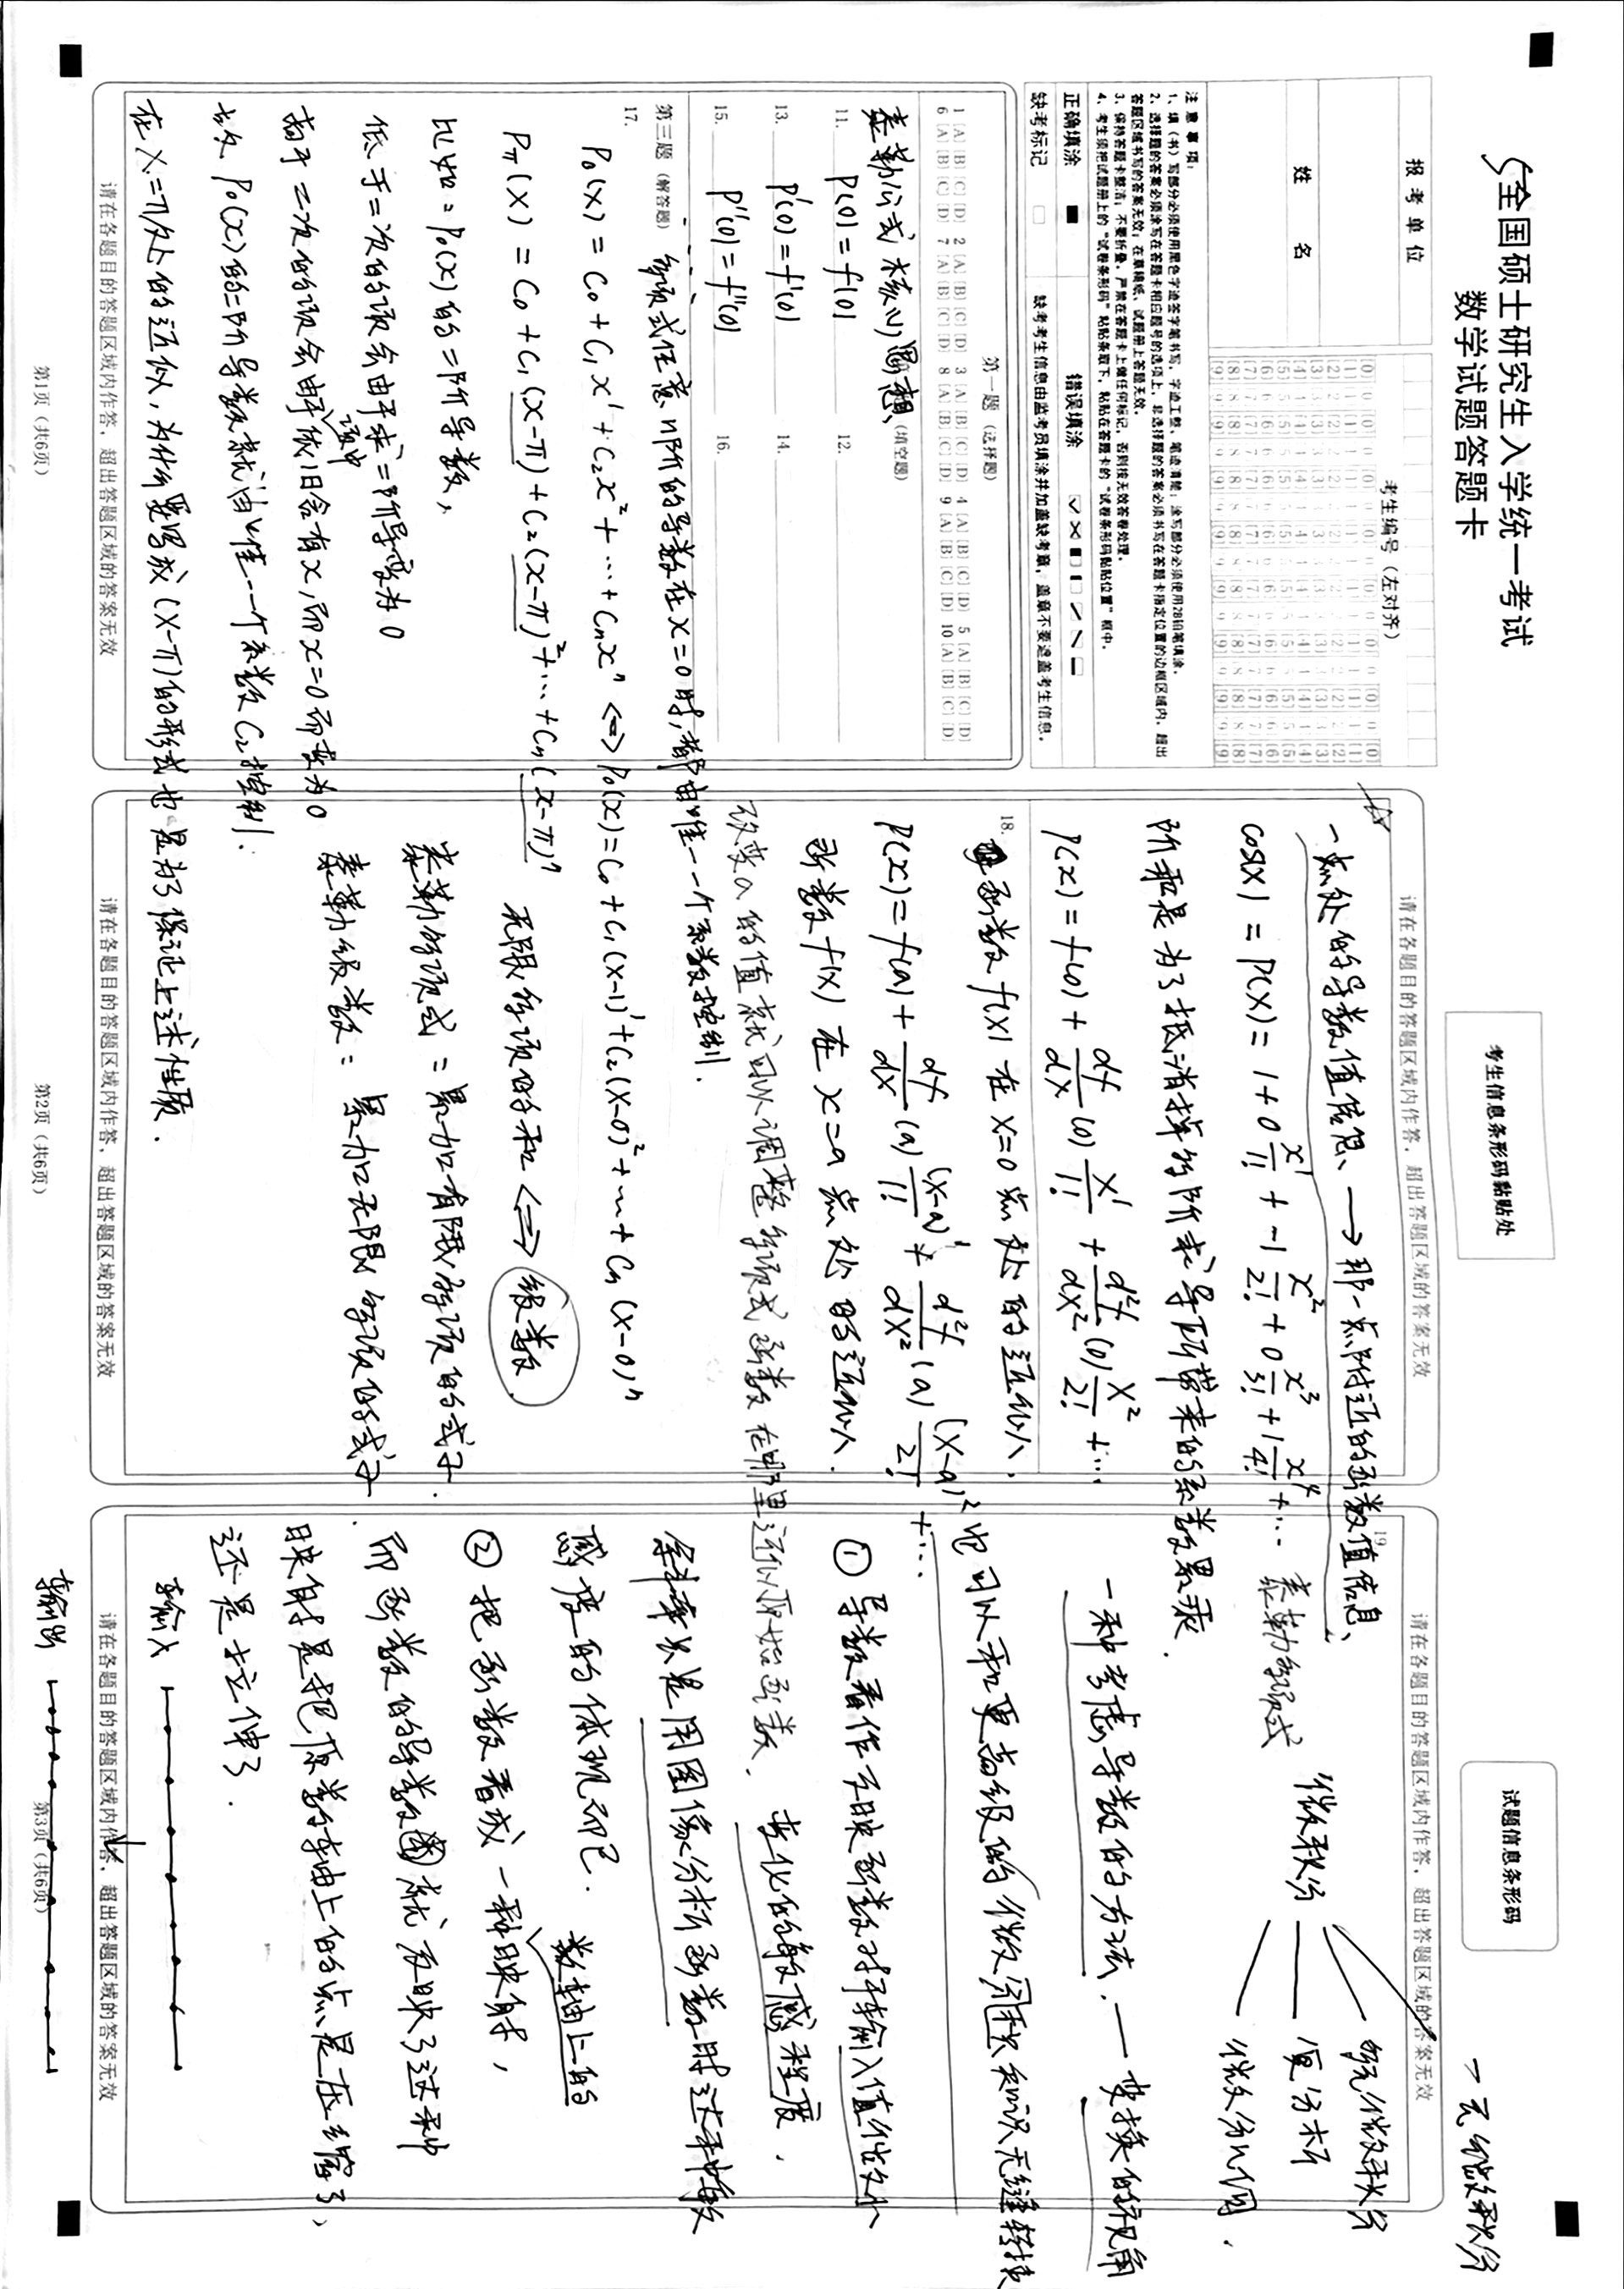 全国硕士研究生入学统一考试
数学试题答题卡
报考单位
姓 名
考生编号（左对齐）
注意事项：
1、填（书）写部分必须使用黑色字迹签字笔书写，字迹工整、笔迹清楚；涂写部分必须使用2B铅笔填涂。
2、选择题的答案必须涂写在答题卡相应题号的选项上，非选择题的答案必须书写在答题卡指定位置的边框区域内，超出
答题区域书写的答案无效；在草稿纸、试题册上答题无效。
3、保持答题卡整洁，不要折叠，严禁在答题卡上做任何标记，否则按无效答卷处理。
4、考生须把试题册上的“试卷条形码”粘贴条取下，粘贴在答题卡的“试卷条形码粘贴位置”框中。
正确填涂 ■ 错误填涂
缺考标记 □ 缺考考生信息由监考员填涂并加盖缺考章，盖章不要遮盖考生信息。
第一题（选择题）
1 [A] [B] [C] [D] 2 [A] [B] [C] [D] 3 [A] [B] [C] [D] 4 [A] [B] [C] [D] 5 [A] [B] [C] [D]
6 [A] [B] [C] [D] 7 [A] [B] [C] [D] 8 [A] [B] [C] [D] 9 [A] [B] [C] [D] 10 [A] [B] [C] [D]
泰勒公式核心思想、（填空题）
11. P(0) = f(0) 12.
13. P'(0) = f'(0) 14.
15. P''(0) = f''(0) 16.
第三题（解答题） 多项式任意n阶的导数在x=0时，都由唯一个系数控制.
17.
P₀(x) = C₀ + C₁x¹ + C₂x² + … + Cₙxⁿ <=> P₀(x) = C₀ + C₁(x-0)¹ + C₂(x-0)² + … + Cₙ(x-0)ⁿ
Pπ(x) = C₀ + C₁(x-π) + C₂(x-π)² + … + Cₙ(x-π)ⁿ
比如：P₀(x)的二阶导数，
低于二次的项会由于求二阶导变为0
高于二次的项会由于该项中依旧含有x，而x=0而变为0
故 P₀(x)的二阶导数就由唯一一个系数C₂控制.
在X=π处的近似，为什么要写成(X-π)的形式也是为了保证上述性质.
请在各题目的答题区域内作答，超出答题区域的答案无效
第1页（共6页）
考生信息条形码粘贴处
请在各题目的答题区域内作答，超出答题区域的答案无效
一点处的导数值信息、→那一点附近的函数值信息、
cos(x) = P(x) = 1 + 0 x¹/1! + -1 x²/2! + 0 x³/3! + 1 x⁴/4! + … 泰勒多项式
阶乘是为了抵消掉多阶求导所带来的系数累乘.
P(x) = f(0) + df/dx (0) x¹/1! + d²f/dx² (0) x²/2! + …
18. 函数f(x)在x=0点处的近似.
P(x) = f(a) + df/dx (a) (x-a)¹/1! + d²f/dx² (a) (x-a)²/2! + …
函数f(x)在x=a点处的近似.
改变a的值就可以调整多项式函数在哪里近似原始函数.
无限多项的和 <=> 级数.
泰勒多项式：累加有限多项的式子.
泰勒级数：累加无限多项的式子
请在各题目的答题区域内作答，超出答题区域的答案无效
第2页（共6页）
试题信息条形码
一元微积分
请在各题目的答题区域内作答，超出答题区域的答案无效
19.
微积分
多元微积分
复分析
微分几何.
一种考虑导数的方法.—变换的视角
也可以和更高级的微分积知识无缝转换
① 导数看作反映函数对于输入值微小
变化的敏感程度.
斜率只是用图像分析函数时这种敏
感度的体现而已.
② 把函数看成一种数轴上的映射，
而函数的导数就反映了这种
映射是把原数轴上的点是压缩了，
还是拉伸了.
输入
请在各题目的答题区域内作答，超出答题区域的答案无效
输出
第3页（共6页）